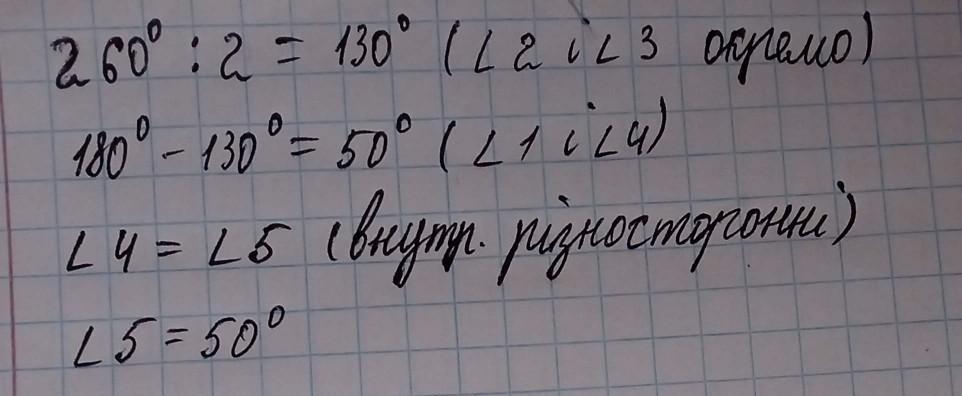 260° : 2 = 130° (∠2 і ∠3 окремо)
180° - 130° = 50° (∠1 і ∠4)
∠4 = ∠5 (внутр. різносторонні)
∠5 = 50°